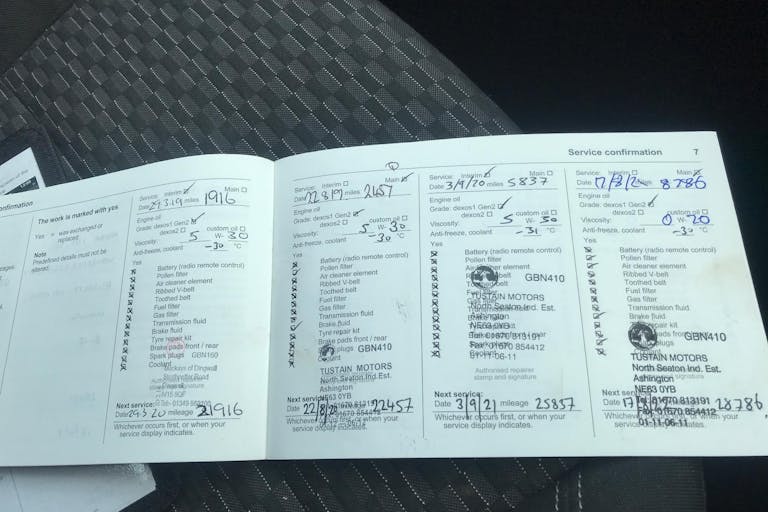 Service confirmation 7
onfirmation
The work is marked with yes
Yes = was exchanged or
replaced
Note
Predefined details must not be
altered.
Service: Interim Main
Date 29.3.19 miles 1916
Engine oil
Grade: dexos1 Gen2
dexos2 custom oil
Viscosity: 5 W- 30
Anti-freeze, coolant -30 °C
Yes
Battery (radio remote control)
Pollen filter
Air cleaner element
Ribbed V-belt
Toothed belt
Fuel filter
Gas filter
Transmission fluid
Brake fluid
Tyre repair kit
Brake pads front / rear
Spark plugs GBN160
Coolant
of Dingwall
Next service:
Date 29 3 20 mileage 21916
Whichever occurs first, or when your
service display indicates.
Service: Interim Main
Date 22/8/19 miles 2457
Engine oil
Grade: dexos1 Gen2
dexos2 custom oil
Viscosity: 5 W- 30
Anti-freeze, coolant -30 °C
Yes
Battery (radio remote control)
Pollen filter
Air cleaner element
Ribbed V-belt
Toothed belt
Fuel filter
Gas filter
Transmission fluid
Brake fluid
Tyre repair kit
Brake pads front / rear
plugs GBN410
Coolant
TUSTAIN MOTORS
North Seaton Ind. Est.
Ashington
NE63 0YB
Next service:
Date 22/8/20 mileage 22457
Whichever occurs first, or when your
service display indicates.
Service: Interim Main
Date 3/9/20 miles 5837
Engine oil
Grade: dexos1 Gen2
dexos2 custom oil
Viscosity: 5 W- 30
Anti-freeze, coolant -31 °C
Yes
Battery (radio remote control)
Pollen filter
element
Ribbed V-belt
GBN410
TUSTAIN MOTORS
North Seaton Ind. Est.
Ashington
NE63 0YB
Tel 01670 813191
Fax 01670 854412
01-11-06-11
Authorised repairer
stamp and signature
Next service:
Date 3/9/21 mileage 25837
Whichever occurs first, or when your
service display indicates.
Service: Interim Main
Date miles 8786
Engine oil
Grade: dexos1 Gen2
dexos2 custom oil
Viscosity: 0 W- 20
Anti-freeze, coolant -30 °C
Yes
Battery (radio remote control)
Pollen filter
Air cleaner element
Ribbed V-belt
Toothed belt
Fuel filter
Gas filter
Transmission fluid
Brake fluid
repair kit
front / rear
plugs GBN410
TUSTAIN MOTORS
North Seaton Ind. Est.
Ashington
NE63 0YB
Tel 01670 813191
Fax 01670 854412
01-11-06-11
Next
Date mileage 28786
Whichever occurs first, or when your
service display indicates.